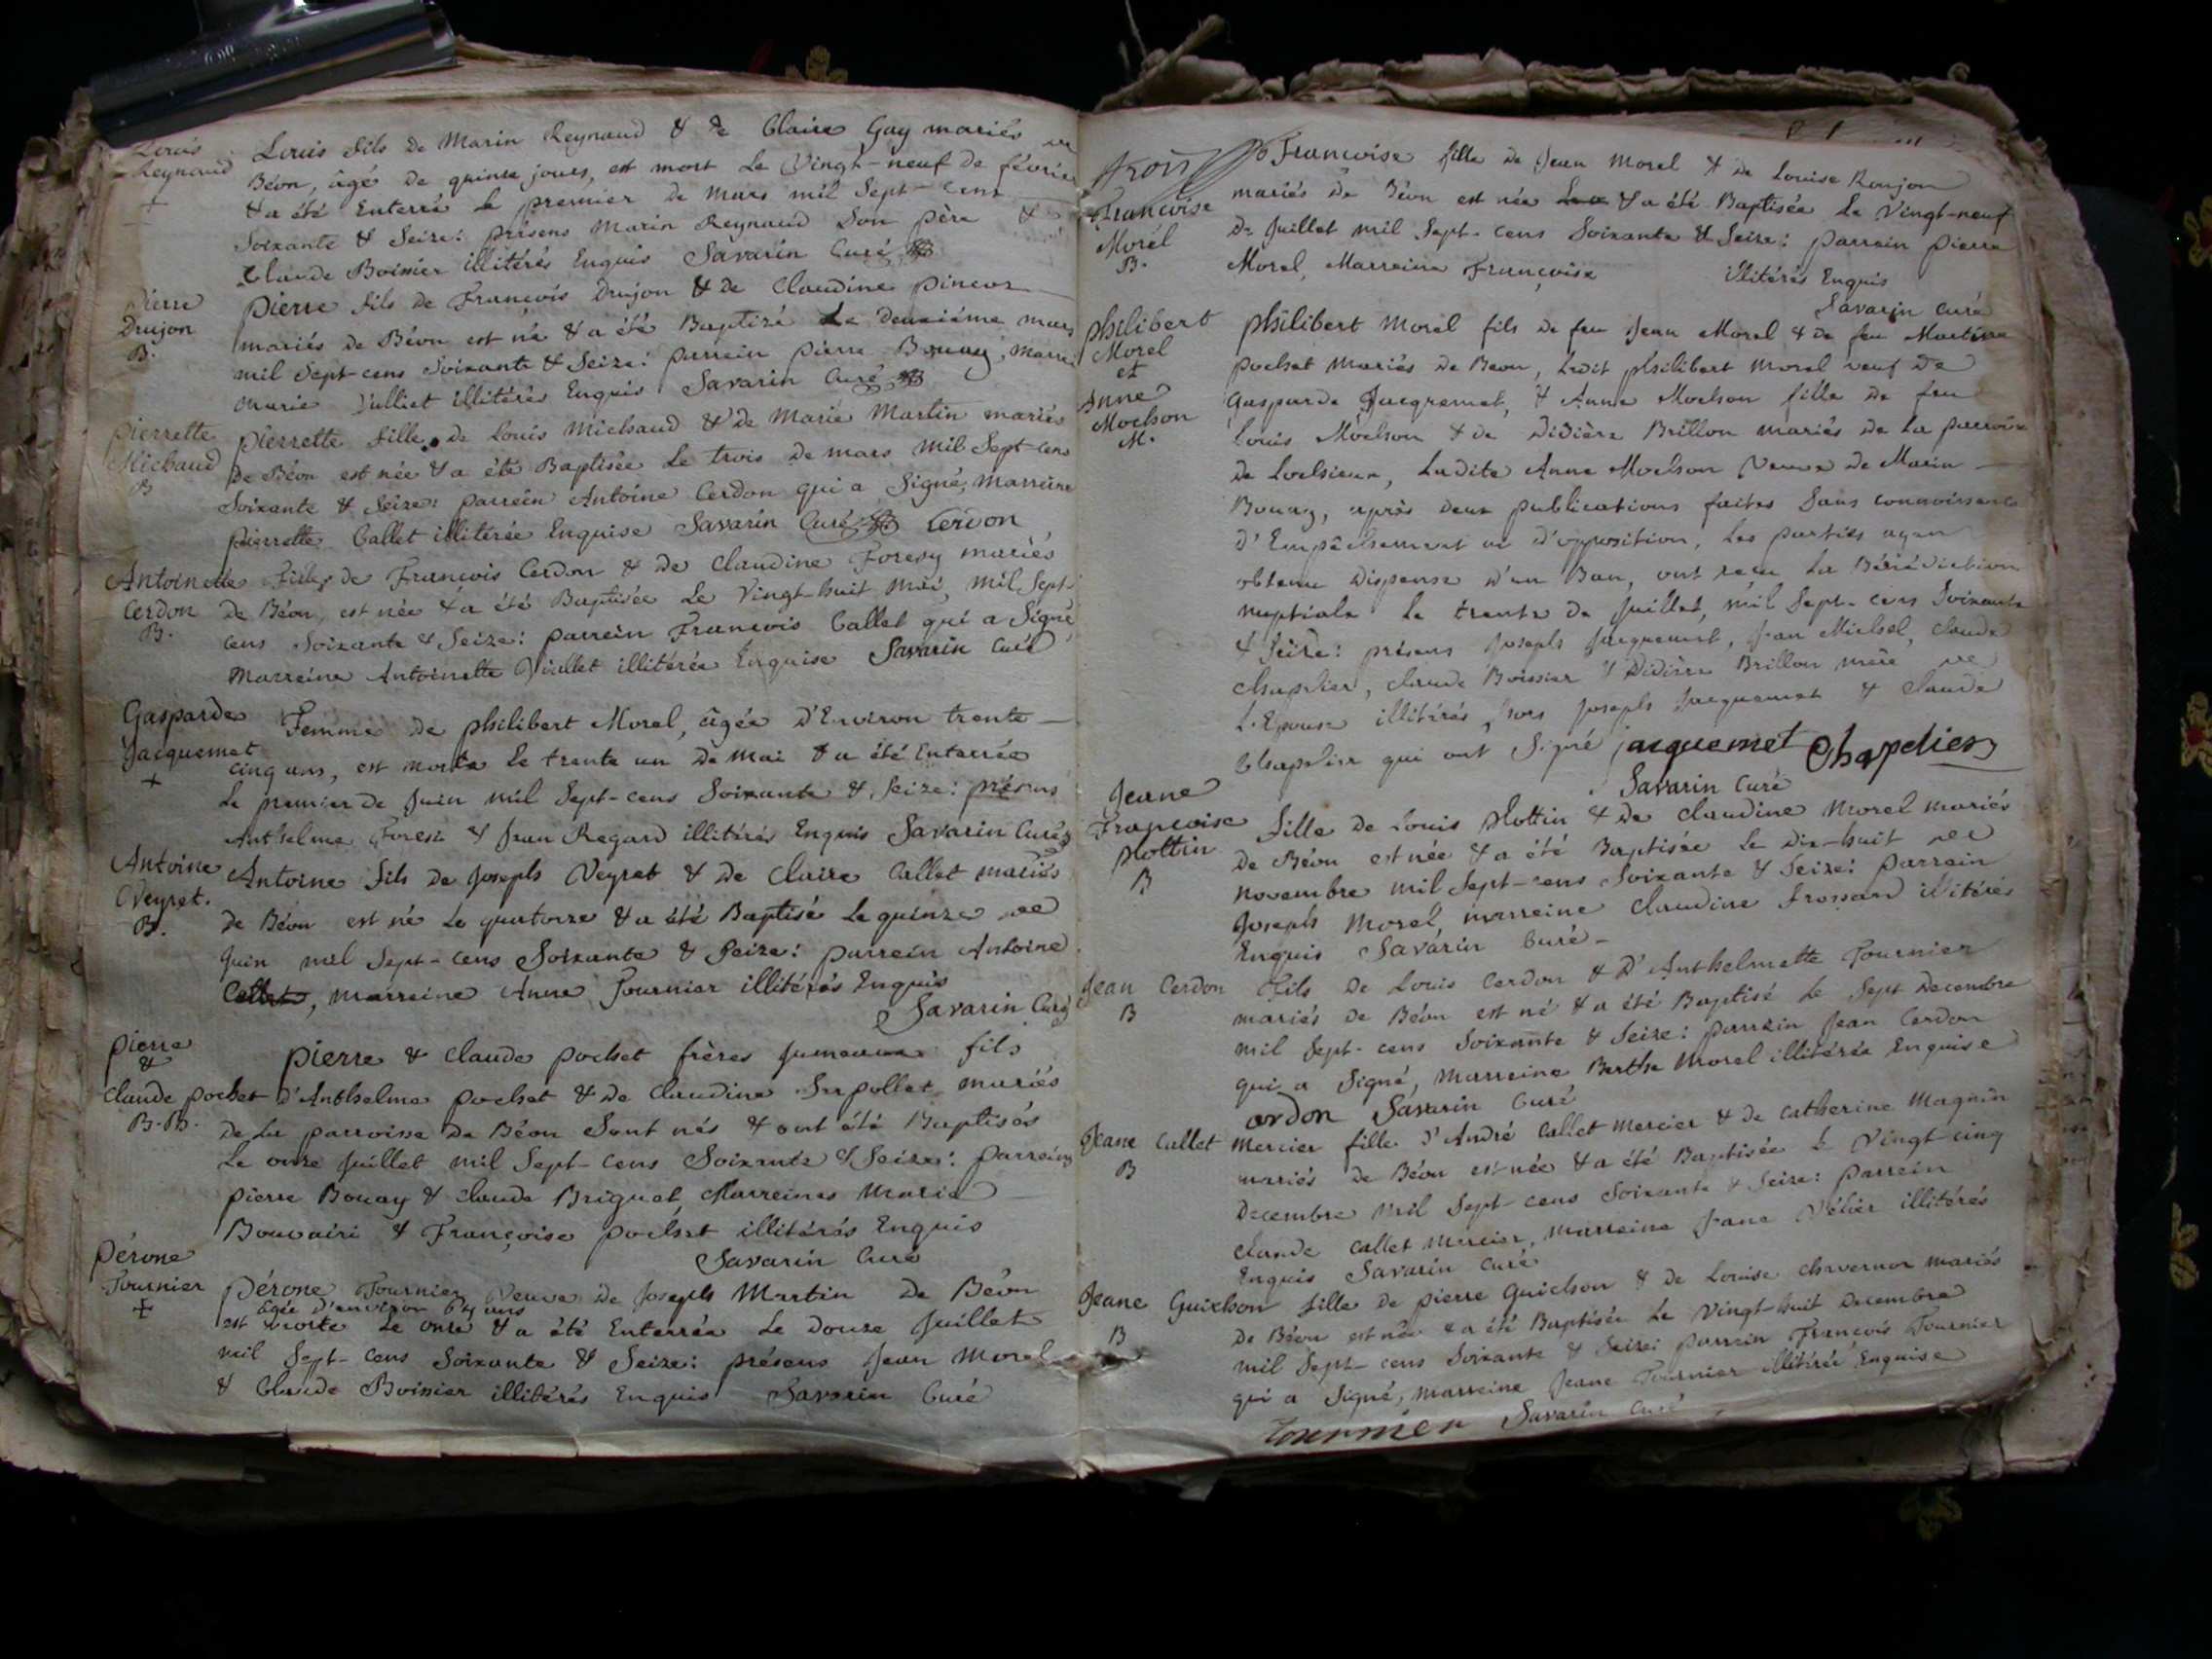 Louis
Reynaud
+
Louis fils de Marin Reynaud & de Claire Guy mariés
Béon, âgé de quinze jours, est mort le Vingt-neuf de février
& a été Enterré le premier de mars mil Sept-cens
Soixante & Seize: présens Marin Reynaud Son père &
Claude Boissier illitérés Enquis Savarin Curé
Pierre
Drujon
B.
Pierre fils de François Drujon & de Claudine Pineur
mariés de Béon est né & a été Baptizé Le Deuxiéme mars
mil Sept-cens Soixante & Seize: parrein pierre Bouay, marre
Marie Julliet illitérés Enquis Savarin Curé
Pierrette
Michaud
B
Pierrette fille de Louis Michaud & de Marie Martin mariés
de Béon est née & a été Baptisée Le trois de mars mil Sept-cens
Soixante & Seize: parrein Antoine Cerdon qui a Signé, Marreine
Pierrette Callet illitérée Enquise Savarin Curé Cerdon
Antoinette
Cerdon
B.
Fille de François Cerdon & de Claudine Foresy mariés
de Béon, est née & a été Baptisée Le Vingt-huit Mai, mil Sept-
cens Soixante & Seize: parrein François Callet qui a Signé
Marreine Antoinette Juillet illitérée Enquise Savarin Curé
Gasparde
Jacquemet
+
Femme de philibert Morel, âgée D'Environ trente
cinq ans, est morte Le trente un De Mai & a été Enterrée
Le premier de Juin mil Sept-cens Soixante & Seize: présens
Anthelme Forest & Jean Regard illitérés Enquis Savarin Curé
Antoine
Veyret.
B.
Antoine fils de Joseph Veyret & de Claire Callet mariés
de Béon est né Le quatorze & a été Baptisé Le quinze de
Juin mil Sept-cens Soixante & Seize: parrein Antoine
Callet, marreine Anne Fournier illitérés Enquis
Savarin Curé
Pierre
&
Claude pochet
B.B.
Pierre & Claude pochet frères Jumeaux fils
d'Anthelme pochet & de Claudine Surpollet mariés
de La parroisse De Béon Sont nés & ont été Baptisés
Le onze Juillet mil Sept-cens Soixante & Seize: Parreins
pierre Bouay & Claude Briquet, Marreines Marie
Bouvairi & Françoise pochet illitérés Enquis
Savarin Curé
Pérone
Fournier
+
Pérone Fournier Veuve De Joseph Martin De Béon
âgée D'environ 64 ans
est morte Le onze & a été Enterrée Le Douze Juillet
mil Sept-cens Soixante & Seize: présens Jean Morel
& Claude Boissier illitérés Enquis Savarin Curé
trois
Françoise
Morel
B.
Françoise fille de Jean Morel & de Louise Roujon
mariés De Béon est née & a été Baptisée Le Vingt-neuf
De Juillet mil Sept-cens Soixante & Seize: parrain pierre
Morel, Marreine Françoise illitérés Enquis
Savarin Curé
philibert
Morel
et
Anne
Mochon
M.
philibert Morel fils de feu Jean Morel & de feu Martine
pochet Mariés de Beon, Ledit philibert Morel veuf De
Gasparde Jacquemet, & Anne Mochon fille de feu
Louis Mochon & de Didière Brillon mariés de La parroisse
de Lochieux, Ladite Anne Mochon Veuve De Marin
Bouay, après deux publications faites Sans connoissance
d'Empêchement ni d'opposition, Les parties ayan
obtenu Dispense d'un Ban, ont recu La Bénédiction
nuptiale Le trente De Juillet, mil Sept-cens Soixante
& Seize: présens Joseph Jacquemet, Jean Michel, Claude
Chapelier, Claude Boissier & Didière Brillon mère de
L'Epouse illitérés, hors Joseph Jacquemet & Claude
Chapelier qui ont Signé jacquemet Chapelier
Savarin Curé
Jeane
Françoise
Plottin
B
fille De Louis Plottin & De Claudine Morel mariés
De Béon est née & a été Baptisée Le Dix-huit de
Novembre mil Sept-cens Soixante & Seize: parrain
Joseph Morel, marreine Claudine Frossard illitérés
Enquis Savarin Curé
Jean Cerdon
B
Fils De Louis Cerdon & D'Anthelmette Fournier
mariés De Béon est né & a été Baptisé Le Sept Decembre
mil Sept-cens Soixante & Seize: parrein Jean Cerdon
qui a Signé, Marreine Berthe Morel illitérée Enquise
Cerdon Savarin Curé
Jeane Callet
B
Mercier fille d'André Callet Mercier & de Catherine Magnin
mariés De Béon est née & a été Baptisée Le Vingt-cinq
Decembre mil Sept-cens Soixante & Seize: parrein
Claude Callet Mercier, marreine Jane Vélier illitérés
Enquis Savarin Curé
Jeane Guichon
B
fille De pierre Guichon & de Louise Chavernor mariés
De Béon est née & a été Baptisée Le Vingt-huit Decembre
mil Sept-cens Soixante & Seize: parrein François Fournier
qui a Signé, marreine Jeane Fournier illitérée Enquise
fournier Savarin Curé